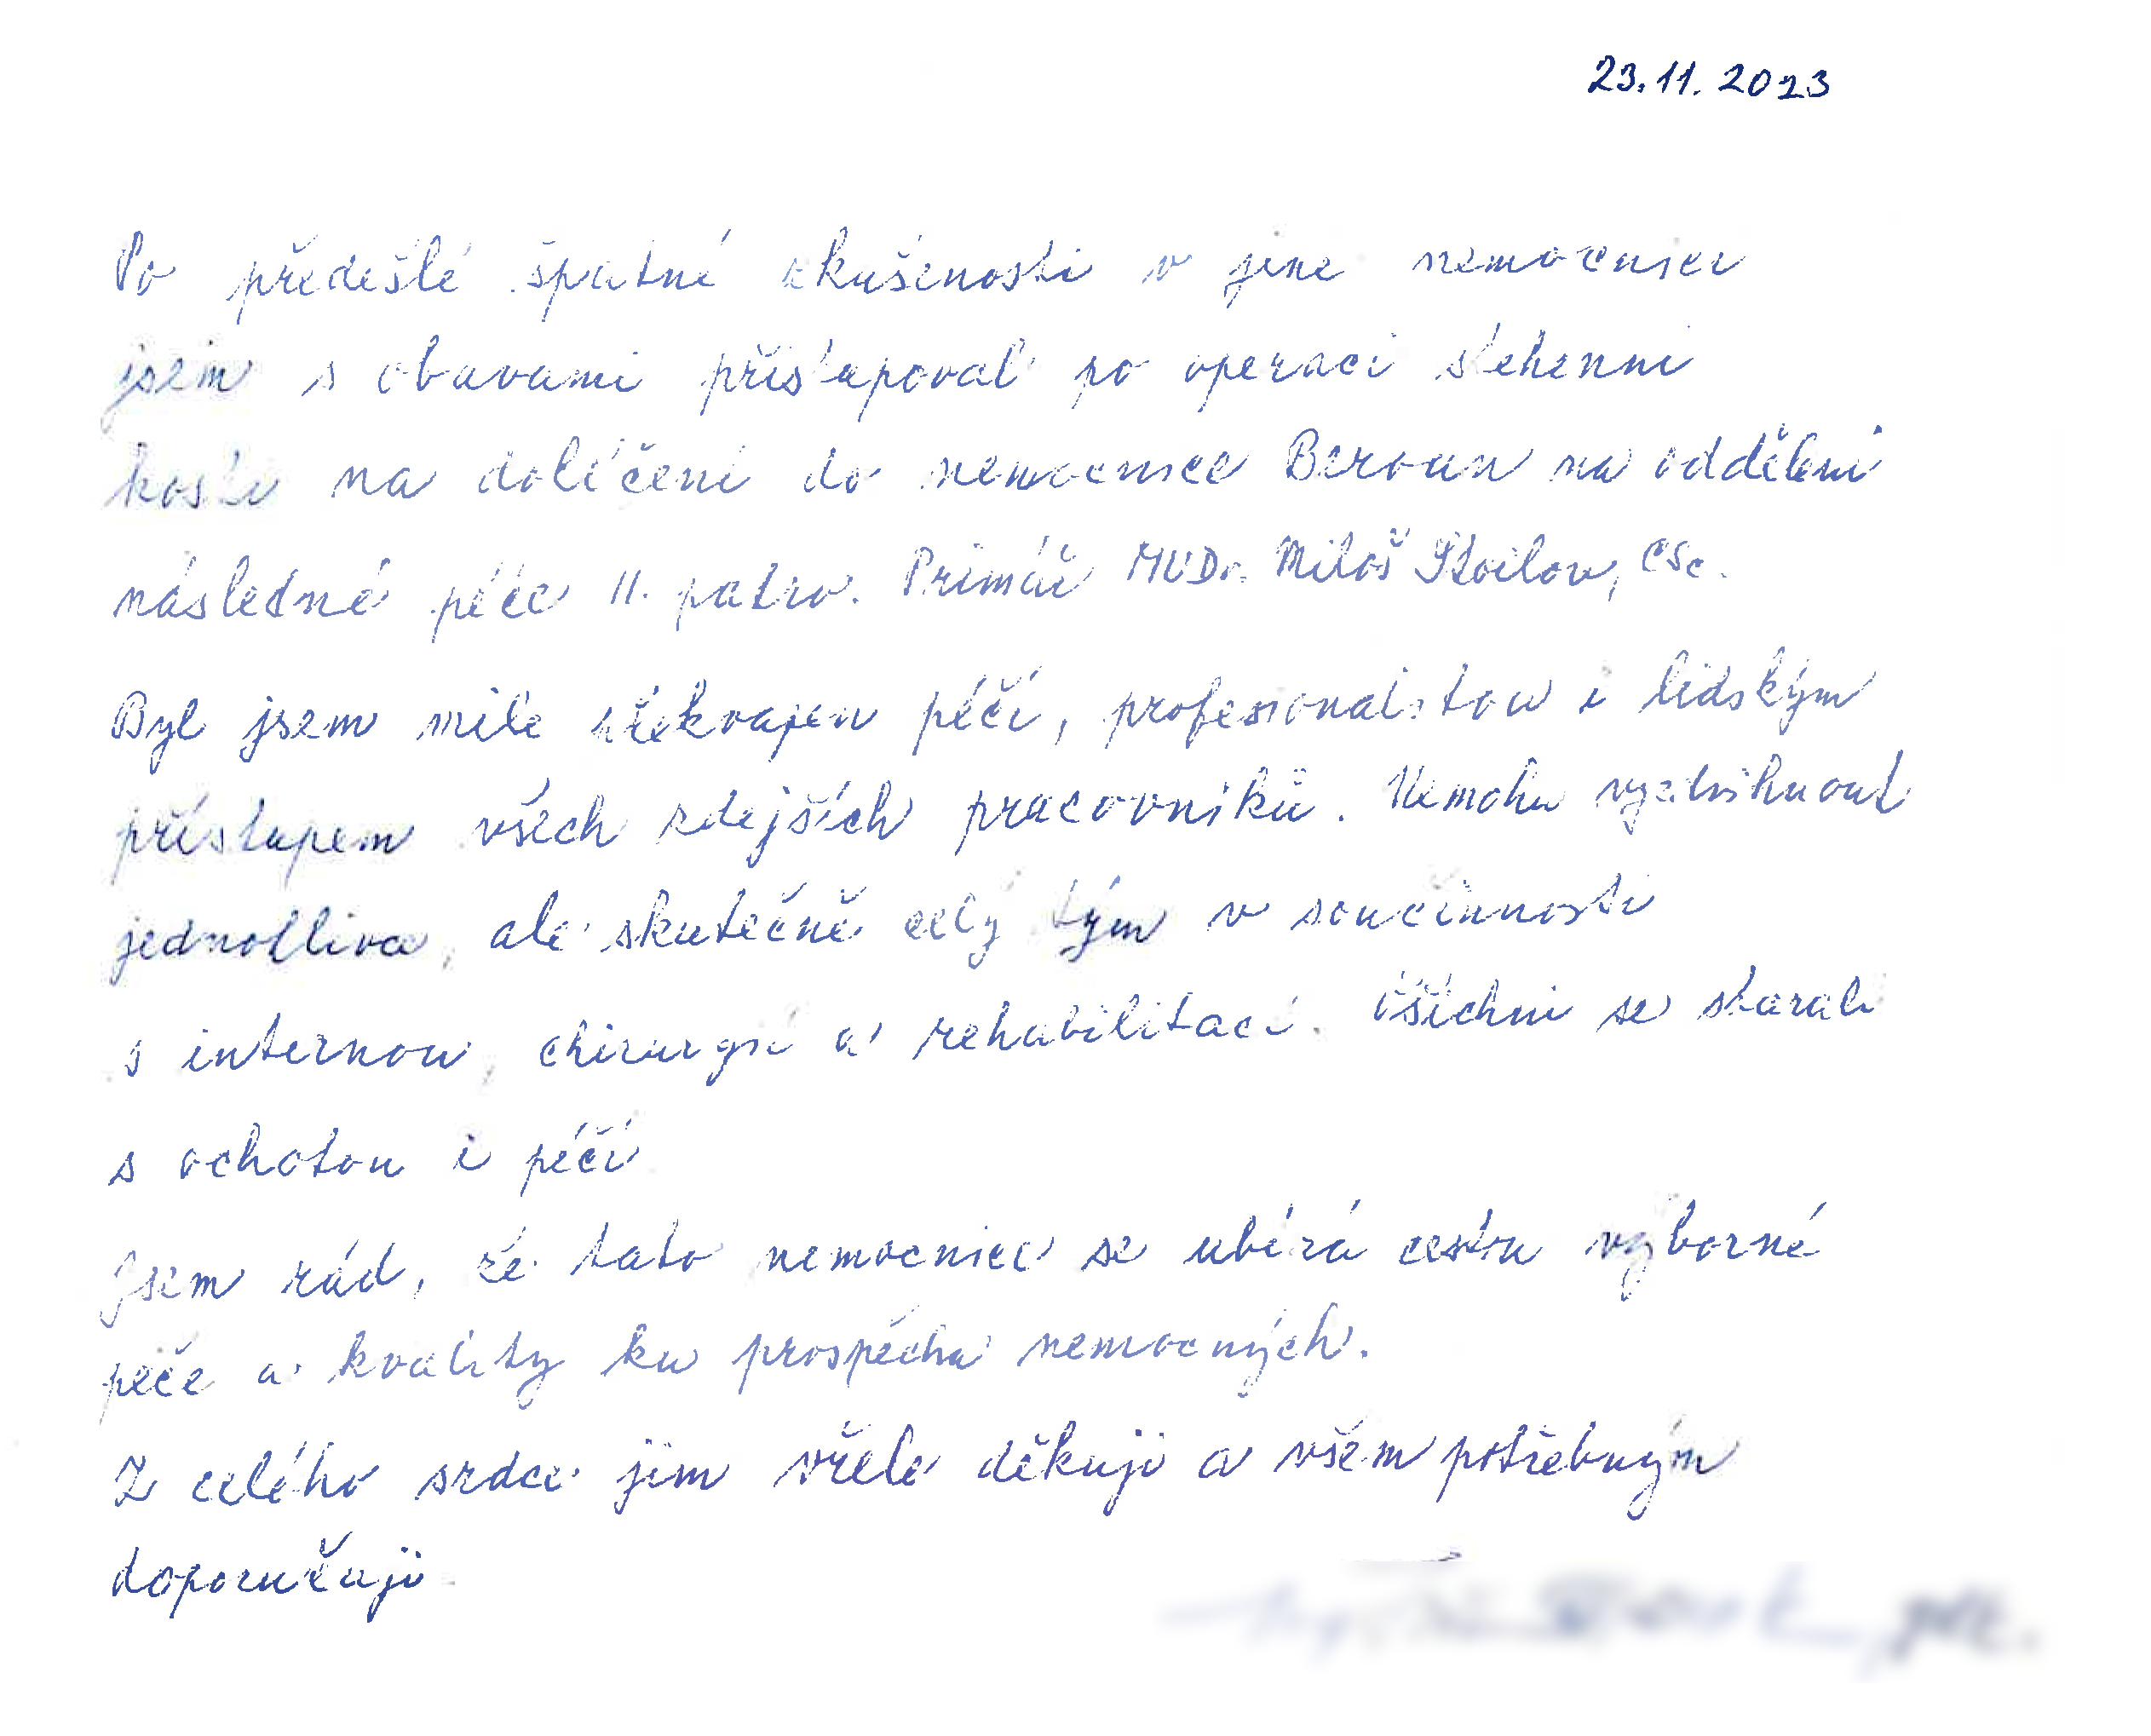 23.11.2023
Po předešlé špatné zkušenosti v jiné nemocnici
jsem s obavami přistupoval po operaci stehenní
kosti na doléčení do nemocnice Beroun na oddělení
následné péče II. patro. Primář MUDr. Miloš Stoilov, CSc.
Byl jsem mile překvapen péčí, profesionalitou i lidským
přístupem všech zdejších pracovníků. Nemohu vyzdvihnout
jednotlivce, ale skutečně celý tým v součinnosti
s internou, chirurgií a rehabilitací. Všichni se starali
s ochotou i péčí
Jsem rád, že tato nemocnice se ubírá cestou výborné
péče a kvality ku prospěchu nemocných.
Z celého srdce jim vřele děkuji a všem potřebným
doporučuji